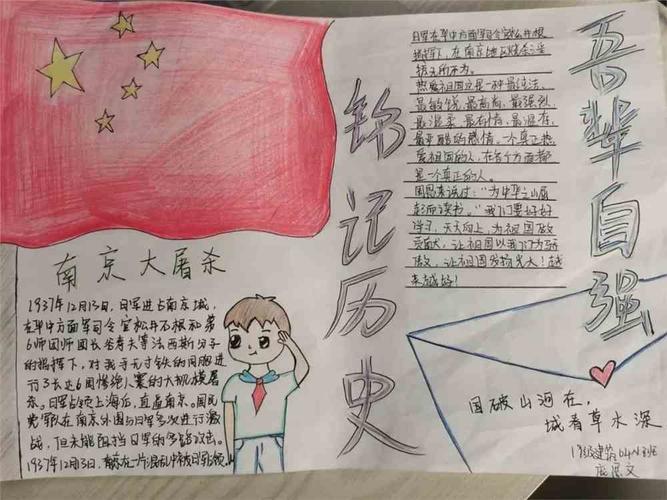 铭记历史
吾辈自强
南京大屠杀
1937年12月13日,日军进占南京城,
在华中方面军司令官松井石根和第
6师团师团长谷寿夫等法西斯分子
的指挥下,对我手无寸铁的同胞进
行了长达6周惨绝人寰的大规模屠
杀。日军占领上海后,直逼南京。国民
党军队在南京外围与日军多次进行激
战,但未能阻挡日军的多路攻击。
1937年12月13日,南京在一片混乱中被日军占领。
日军在华中方面军司令官松井石根
指挥下,在南京地区烧杀淫
掠无所不为。
热爱祖国,这是一种最纯洁、
最敏锐、最高尚、最强烈
最温柔、最有情、最温存、
最严酷的感情。一个真正热
爱祖国的人,在各个方面都
是一个真正的人。
周恩来说过:“为中华之崛
起而读书。”我们要好好
学习,天天向上,为祖国做
贡献,让祖国以我们为骄
傲,让祖国发扬光大!越
来越好!
国破山河在,
城春草木深